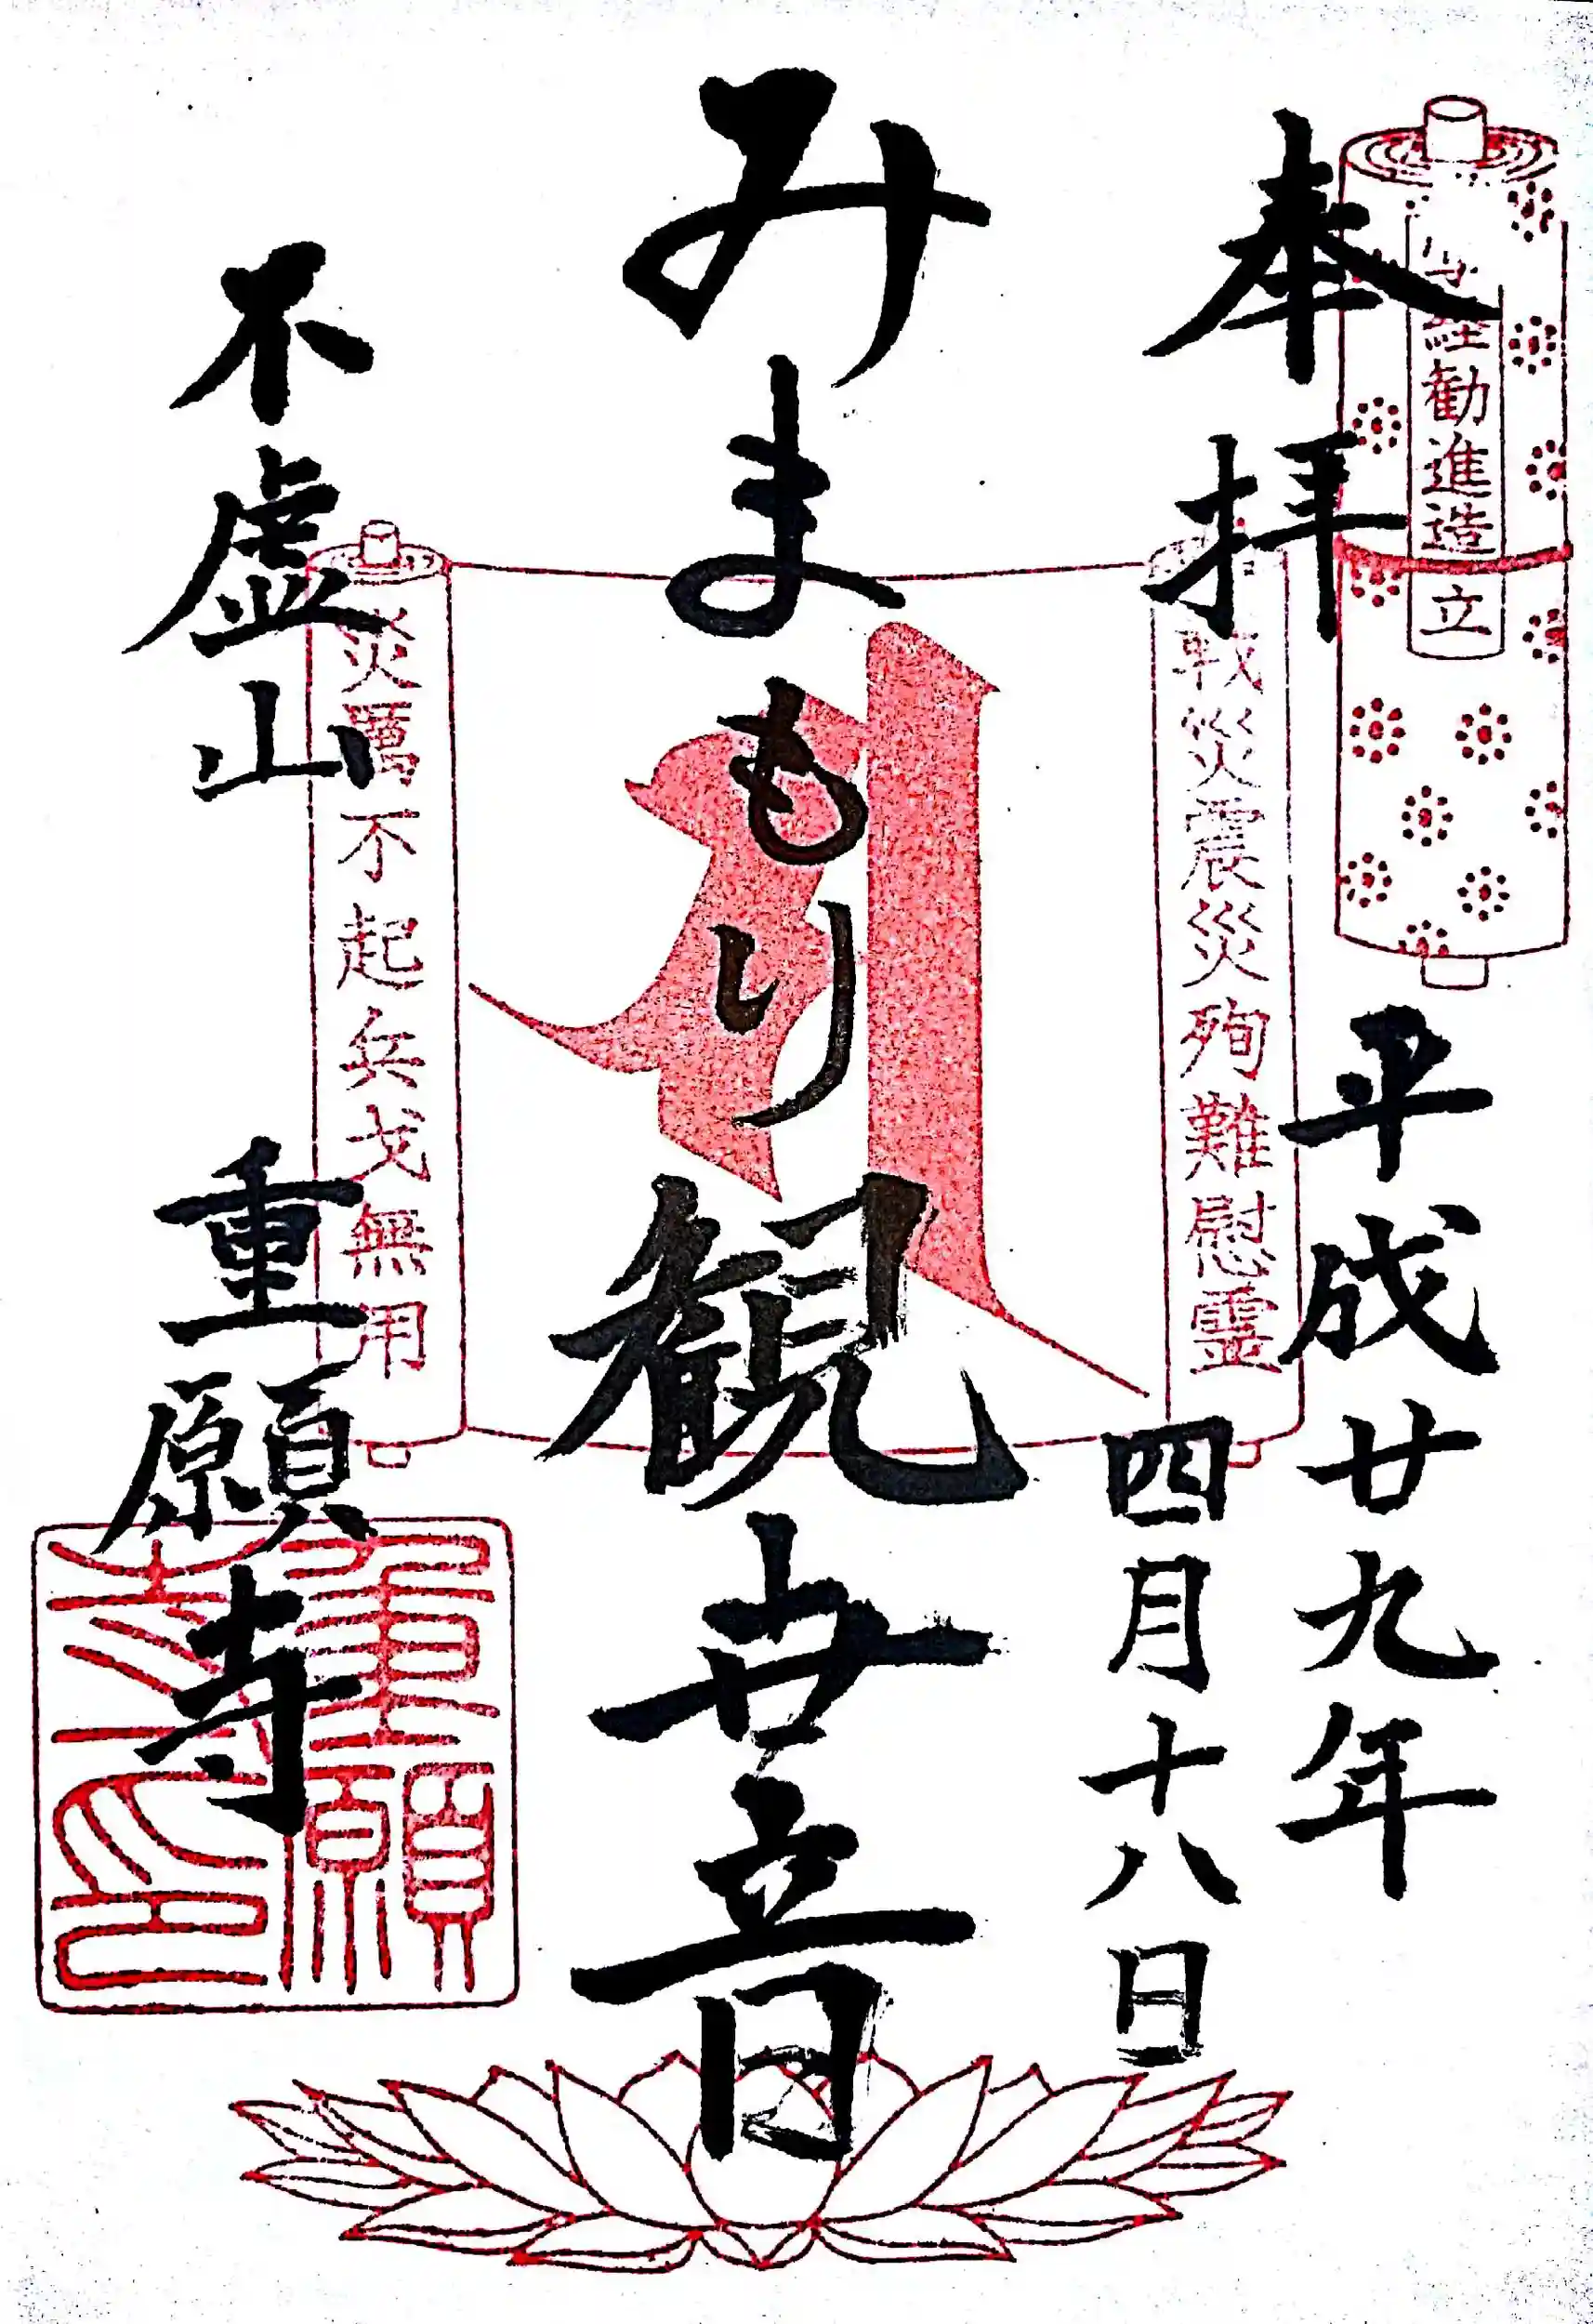 奉拝
経勧進造立
平成廿九年
四月十八日
戦災震災殉難慰霊
みまもり観世音
災厲不起兵戈無用
不虚山
重願寺
重願寺印